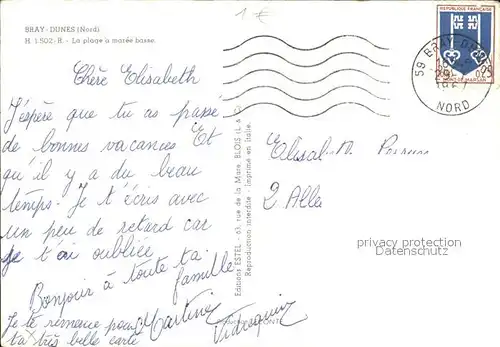 1 €
BRAY-DUNES (Nord)
H 1.502-R - La plage à marée basse.
Chère Elisabeth
J'espère que tu as passé
de bonnes vacances Et
qu'il y a du beau
temps. Je t'écris avec
un peu de retard car
je t'ai oubliée
Bonjour à toute ta
famille
Martine
Je te remercie pour
ta très belle carte
Editions ESTEL - 63, rue de la Mare, BLOIS (L. & C.)
Reproduction interdite - Imprimé en Italie.
REPUBLIQUE FRANÇAISE
MONT-DE-MARSAN
59 BRAY-DUNES
NORD
Elisabeth
2 Allée
privacy protection
Datenschutz